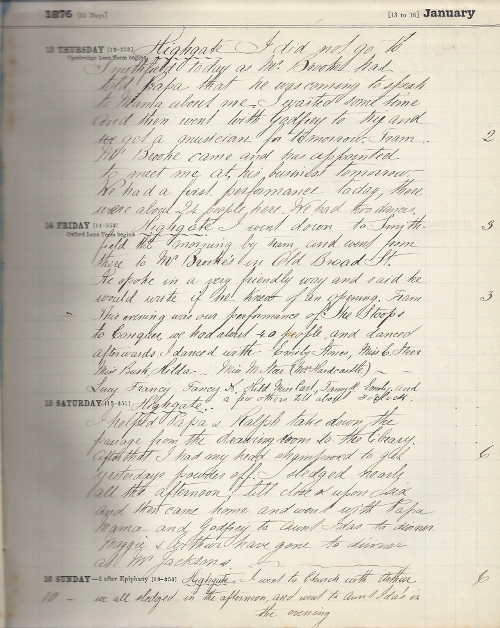 1876 [31 Days] [13 to 16] January
13 THURSDAY [13-353] Highgate I did not go to
Cambridge Lent Term begins
Smithfield today as Mr. Brooke had
told Papa that he was coming to speak
to Mama about me. I waited some time
and then went with Godfrey to try and
get a musician for tomorrow. Tram 2
Mr Brooke came and has appointed
to meet me at his business tomorrow.
We had a first performance today, there
were about 24 people here. We had two dances.
14 FRIDAY [14-352] Highgate I went down to Smith- 3
Oxford Lent Term begins
field this morning by tram, and went from
there to Mr Brooke's in Old Broad St.
He spoke in a very friendly way and said he
would write if he knew of an opening. Tram 3
This evening was our performance of She Stoops
to Conquer, we had about 40 people, and danced
afterwards I danced with Emily Ames, Miss C. Heer
Miss Bush, Hilda Miss M (Mrs Hardcastle)
Lucy Francy, Fancy and
a few others till about o'clock.
15 SATURDAY [15-351] Highgate
I helped Papa & Ralph take down the
passage from the drawing room to the library.
After that I had my head shampooed to get 6
yesterdays powder off. I sledged nearly
all the afternoon till close upon six
and then came home and went with Papa
Mama and Godfrey to Aunt Ida's to dinner
Maggie & Arthur have gone to dinner
at Mr Jacksons.
16 SUNDAY—2 after Epiphany [16-350] Highgate I went to Church with Arthur 6
10 - we all sledged in the afternoon, and went to Aunt Ida's in
the evening